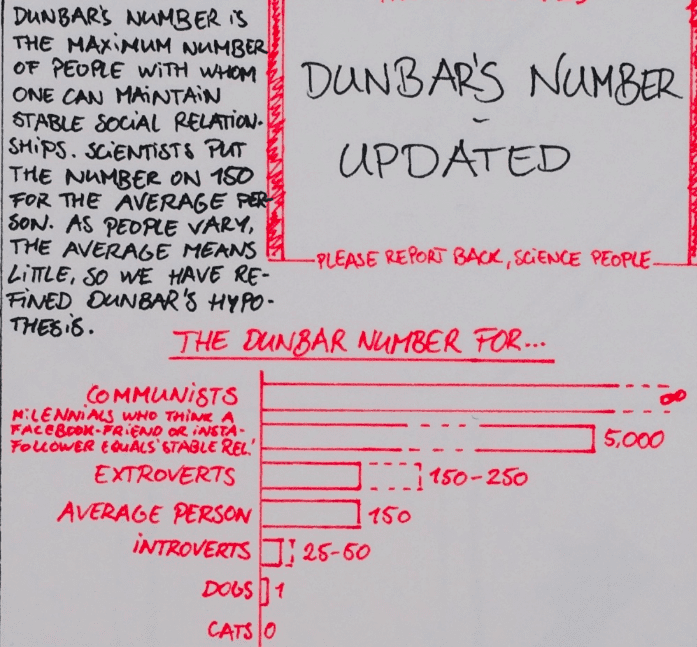 DUNBAR'S NUMBER IS
THE MAXIMUM NUMBER
OF PEOPLE WITH WHOM
ONE CAN MAINTAIN
STABLE SOCIAL RELATION-
SHIPS. SCIENTISTS PUT
THE NUMBER ON 150
FOR THE AVERAGE PER-
SON. AS PEOPLE VARY,
THE AVERAGE MEANS
LITTLE, SO WE HAVE RE-
FINED DUNBAR'S HYPO-
THESIS.
DUNBAR'S NUMBER
-
UPDATED
PLEASE REPORT BACK, SCIENCE PEOPLE
THE DUNBAR NUMBER FOR...
COMMUNISTS ∞
MILENNIALS WHO THINK A
FACEBOOK-FRIEND OR INSTA-
FOLLOWER EQUALS 'STABLE REL.' 5,000
EXTROVERTS 150-250
AVERAGE PERSON 150
INTROVERTS 25-50
DOGS 1
CATS 0